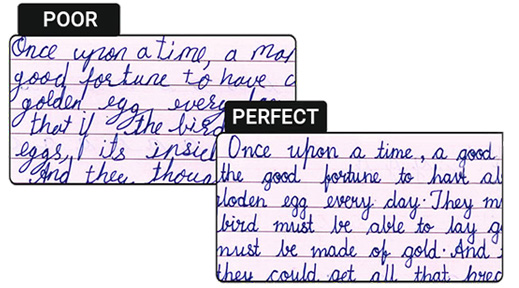 POOR
Once upon a time, a man
good fortune to have a
golden egg every
that if the bird
eggs, its insid
And thee thous
PERFECT
Once upon a time, a good
the good fortune to havt al
loden egg every day. They m
bird must be able to lay g
must be made of gold. And
they could get all that brec